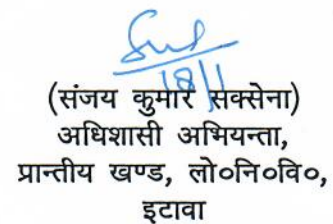 18/1
(संजय कुमार सक्सेना)
अधिशासी अभियन्ता,
प्रान्तीय खण्ड, लो०नि०वि०,
इटावा